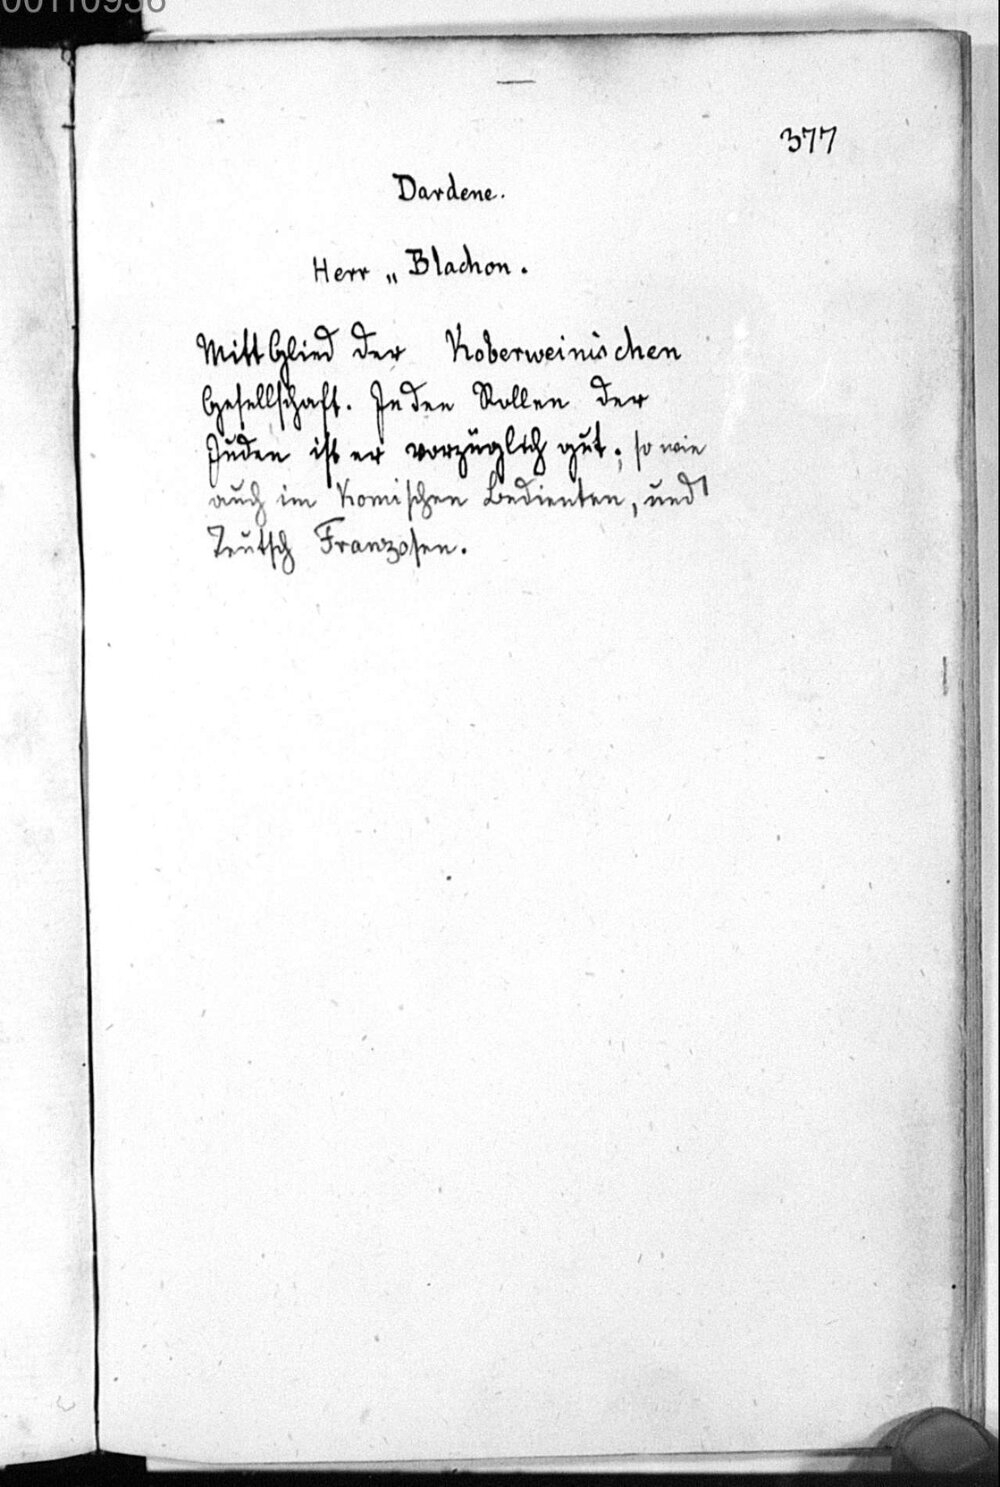 00110938
377
Dardene.
Herr „ Blachon.
Mitt Glied der Koberweinischen
Gesellschaft. In den Rollen der
Juden ist er vorzüglich gut; so wie
auch im Komischen Bedienten, und
Teutsch Franzosen.